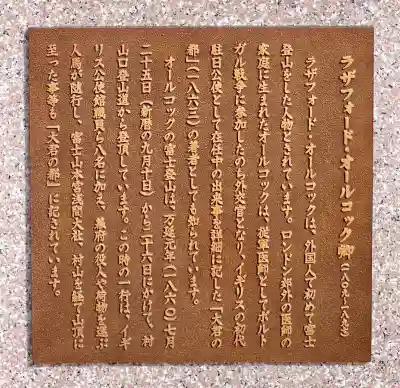 ラザフォード・オールコック卿(一八〇九-一八九七)
ラザフォード・オールコックは、外国人で初めて富士
登山をした人物とされています。ロンドン郊外の医師の
家庭に生まれたオールコックは、従軍医師としてポルト
ガル戦争に参加したのち外交官となり、イギリスの初代
駐日公使として在任中の出来事を詳細に記した「大君の
都」(一八六三)の著者としても知られています。
オールコックの富士登山は、万延元年(一八六〇)七月
二十五日(新暦の九月十日)から二十六日にかけて、村
山口登山道から登頂しています。この時の一行は、イギ
リス公使館職員ら八名に加え、幕府の役人や荷物を運ぶ
人馬が随行し、富士山本宮浅間大社、村山を経て山頂に
至った事等も「大君の都」に記されています。